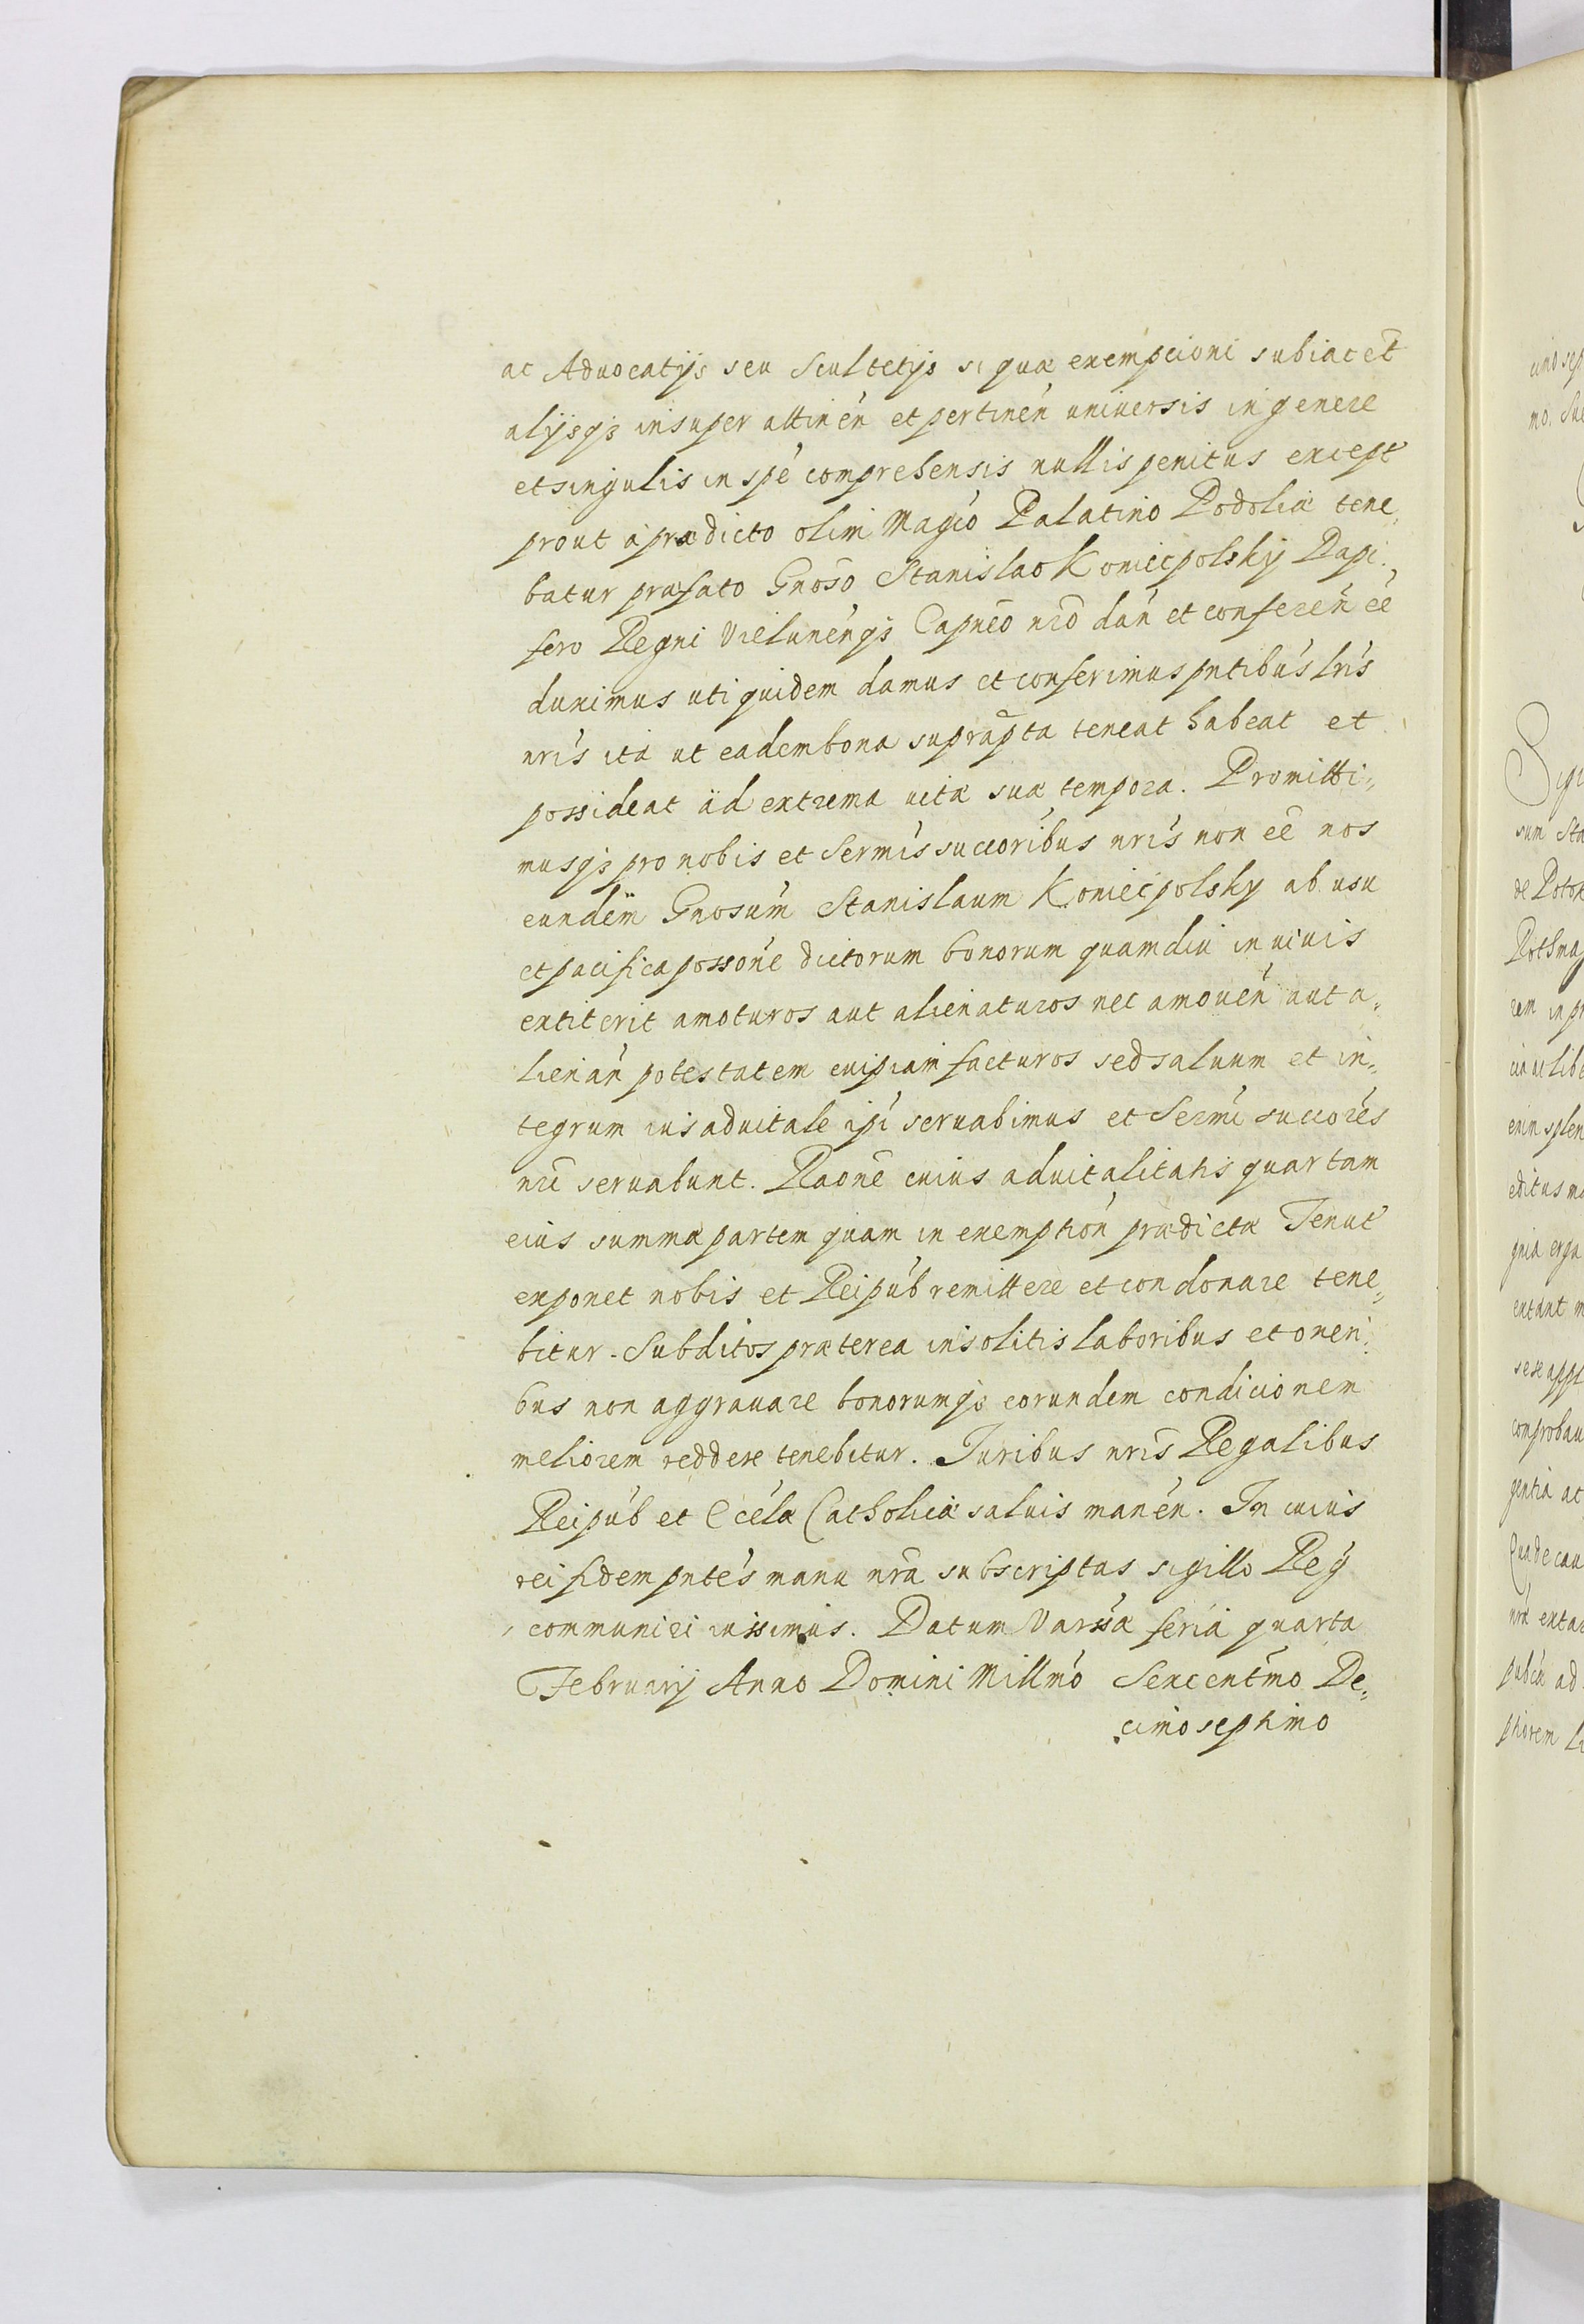 ac Advocatijs seu Scultetijs si quæ exempcioni subiacēt
alijsqȝ insuper attinen̄ et pertinen̄ universis in genere
et singulis in spē comprehensis nullis penitus except
prout à prædicto olim Magcō Palatino Podoliæ tene„
batur præfato Gnōso Stanislao Koniecpolskÿ Dapi„
fero Regni Vielunēnqȝ Capnēo nrō dan̄ et conferen̄ eē
duximus uti quidem damus et conferimus pntibūs lrīs
nrīs ità ut eadem bona suprap̄ta teneat habeat et
possideat ad extrema vitæ suæ tempora. Promitti„
musqȝ pro nobis et Sermīs succōribus nrīs non eē nos
eundem Gnosūm Stanislaum Koniecpolsky ab usu
et pacifica possonē dictorum bonorum quamdiu in vivis
extiterit amoturos aut alienaturos nec amoven̄ aut a„
lienan̄ potestatem cuipiam facturos sed salvum et in„
tegrum ius advitale ipī servabimus et Sermī succorēs
nrī servabunt. Raonē cuius advitalitatis quartam
eius summæ partem quam in exemption̄ prædictæ Tenut
exponet nobis et Reipūb remittere et condonare tene„
bitur. Subditos præterea insolitis laboribus et oneri„
bus non aggravare bonorumqȝ eorundem condicionem
meliorem reddere tenebitur. Juribus nrīs Regalibus
Reipūb et Eccēlæ Catholicæ salvis manēn. In cuius
rei fidem pntēs manu nrā subscriptas sigillo Reg̃
communiri iussimus. Datum Varsāæ feria quarta
Februarij Anno Domini Millmō Sexcentmō De„
cimo septimo